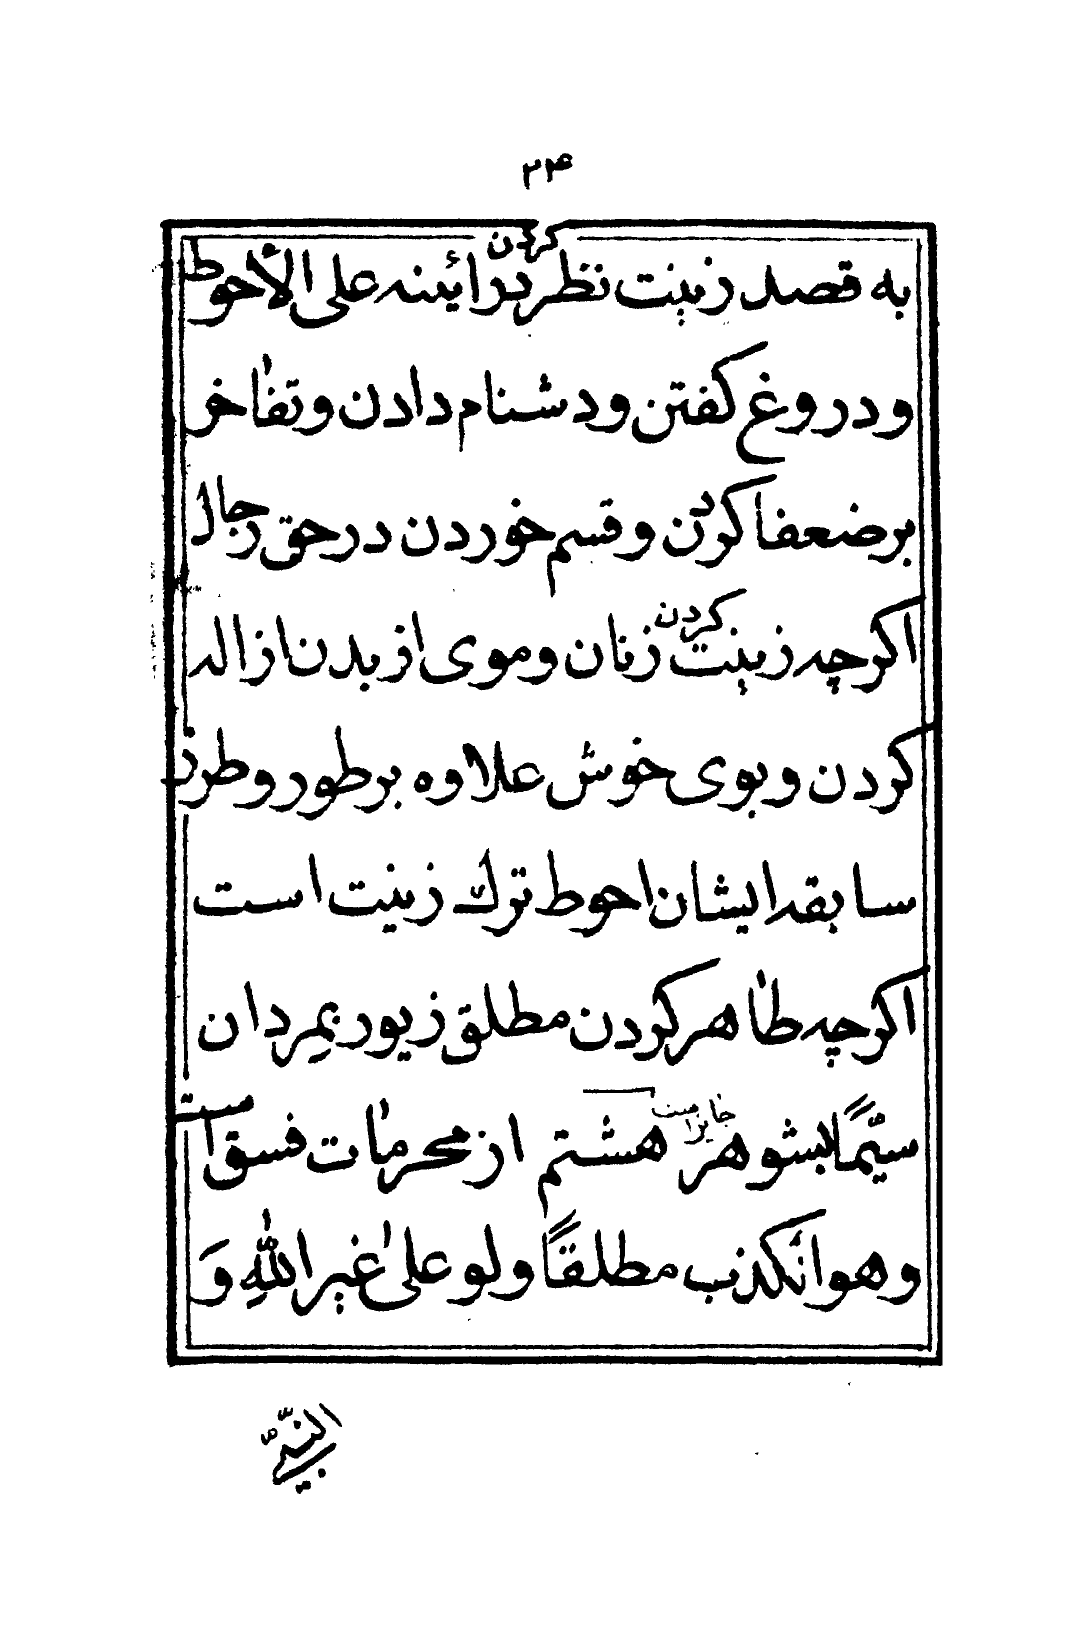 ۲۴
به قصد زینت نظر کردن در ائینه علی الأحوط
و دروغ کفتن و دشنام دادن و تفاخر
بر ضعفا کردن و قسم خوردن در حق رجال
اکرچه زینت کردن زنان و موی از بدن ازاله
کردن و بوی خوش علاوه بر طور و طرز
سابقه ایشان احوط ترك زینت است
اکرچه ظاهر کردن مطلق زیور بمردان
سیّمًا بشوهر جایز است هشتم از محرمات فسق است
و هو انکذب مطلقًا و لو علی غیر اللهِ وَ
النبیّ ص